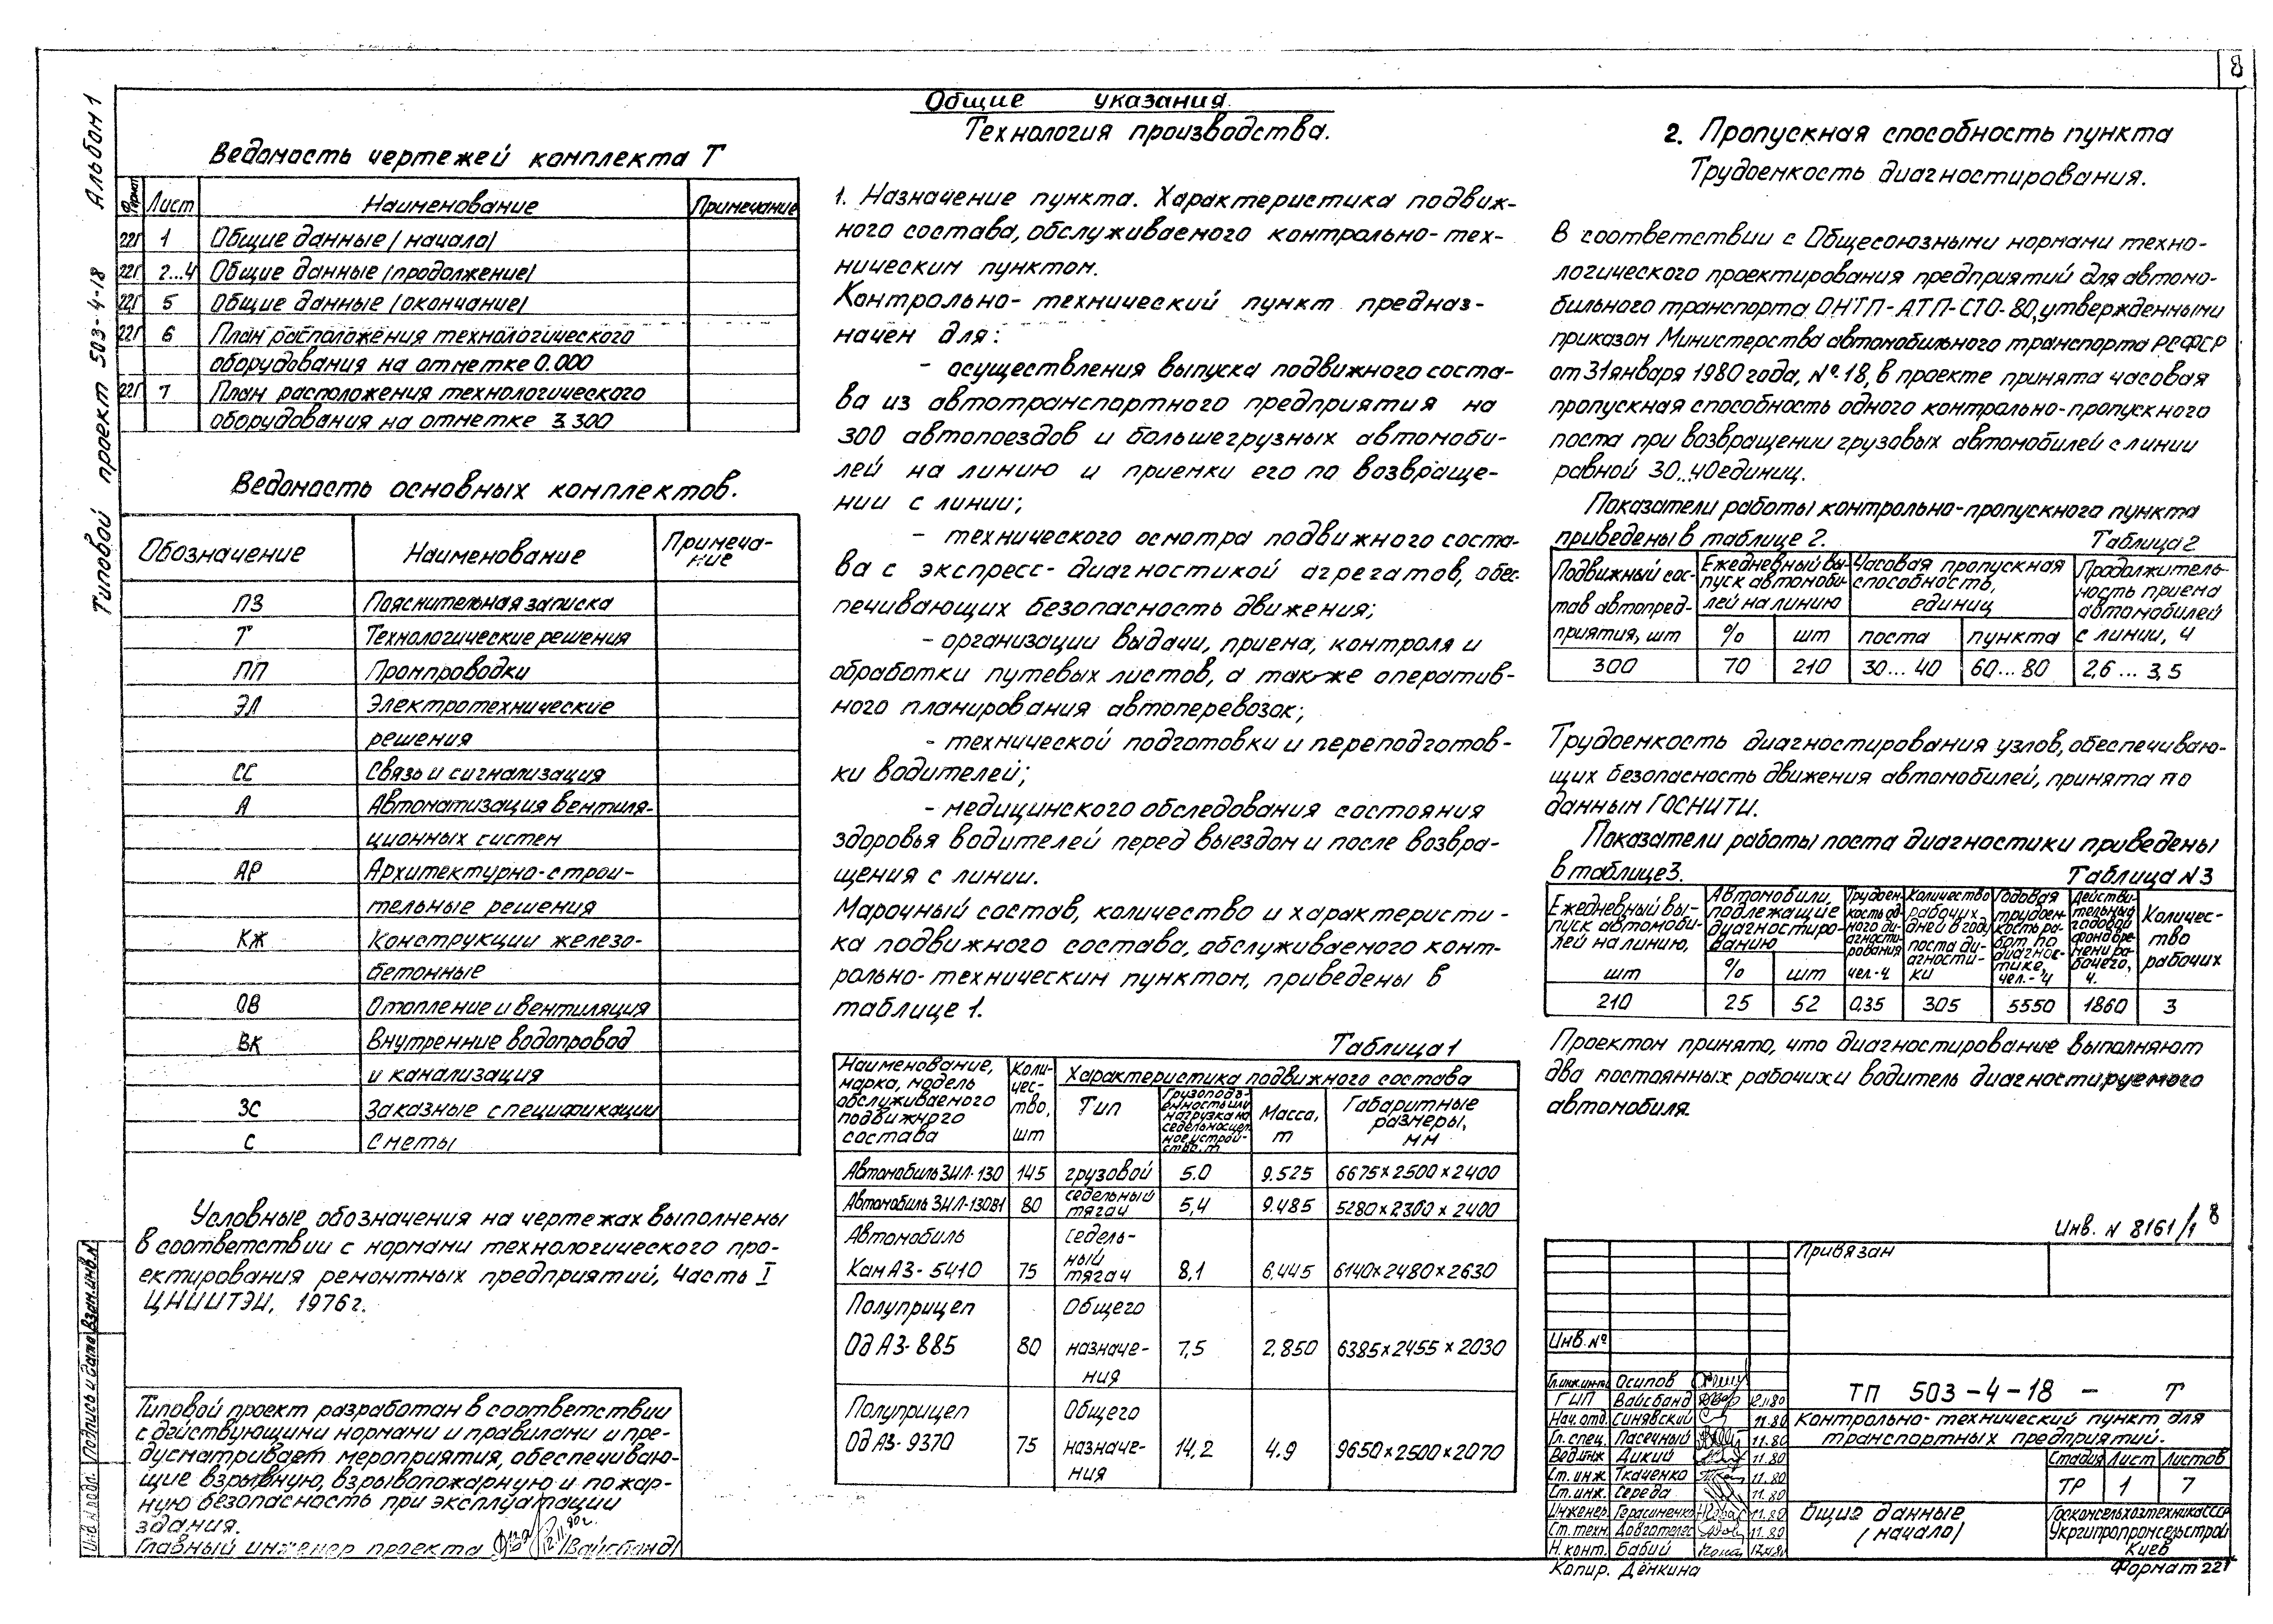 8
Альбом 1
Типовой проект 503-4-18
Ведомость чертежей комплекта Т
Формат Лист Наименование Примечание
22Г 1 Общие данные /начало/
22Г 2...4 Общие данные /продолжение/
22Г 5 Общие данные /окончание/
22Г 6 План расположения технологического
оборудования на отметке 0.000
22Г 7 План расположения технологического
оборудования на отметке 3.300
Ведомость основных комплектов.
Обозначение Наименование Примеча-
ние
ПЗ Пояснительная записка
Т Технологические решения
ПП Промпроводки
ЭЛ Электротехнические
решения
СС Связь и сигнализация
А Автоматизация вентиля-
ционных систем
АР Архитектурно-строи-
тельные решения
КЖ Конструкции железо-
бетонные
ОВ Отопление и вентиляция
ВК Внутренние водопровод
и канализация
ЗС Заказные спецификации
С Сметы
Условные обозначения на чертежах выполнены
в соответствии с нормами технологического про-
ектирования ремонтных предприятий, часть I
ЦНИИТЭИ, 1976г.
Типовой проект разработан в соответствии
с действующими нормами и правилами и пре-
дусматривает мероприятия, обеспечиваю-
щие взрывную, взрывопожарную и пожар-
ную безопасность при эксплуатации
здания.
Главный инженер проекта /Вайсбанд/
Инв. N подл. Подпись и дата Взам.инв.N
Общие указания.
Технология производства.
1. Назначение пункта. Характеристика подвиж-
ного состава, обслуживаемого контрольно-тех-
ническим пунктом.
Контрольно-технический пункт предназ-
начен для:
- осуществления выпуска подвижного соста-
ва из автотранспортного предприятия на
300 автопоездов и большегрузных автомоби-
лей на линию и приемки его по возвраще-
нии с линии;
- технического осмотра подвижного соста-
ва с экспресс-диагностикой агрегатов, обес-
печивающих безопасность движения;
- организации выдачи, приема, контроля и
обработки путевых листов, а также оператив-
ного планирования автоперевозок;
- технической подготовки и переподготов-
ки водителей;
- медицинского обследования состояния
здоровья водителей перед выездом и после возвра-
щения с линии.
Марочный состав, количество и характеристи-
ка подвижного состава, обслуживаемого конт-
рольно-техническим пунктом, приведены в
таблице 1.
Таблица 1
Наименование, марка, модель обслуживаемого подвижного состава Коли-чес-тво, шт Характеристика подвижного состава
Тип Грузоподъ-емность или нагрузка на седельносцеп-ное устрой-ство, т Масса, т Габаритные размеры, мм
Автомобиль ЗИЛ-130 145 грузовой 5.0 9.525 6675×2500×2400
Автомобиль ЗИЛ-130В1 80 седельный тягач 5,4 9.485 5280×2360×2400
Автомобиль Седель-
КамАЗ-5410 75 ный тягач 8,1 6.445 6140×2480×2630
Полуприцеп Общего
ОдАЗ-885 80 назначе- 7,5 2.850 6385×2455×2030
ния
Полуприцеп Общего
ОдАЗ-9370 75 назначе- 14,2 4.9 9650×2500×2070
ния
2. Пропускная способность пункта
Трудоемкость диагностирования.
В соответствии с Общесоюзными нормами техно-
логического проектирования предприятий для автомо-
бильного транспорта ОНТП-АТП-СТО-80, утвержденными
приказом Министерства автомобильного транспорта РСФСР
от 31 января 1980 года, № 18, в проекте принята часовая
пропускная способность одного контрольно-пропускного
поста при возвращении грузовых автомобилей с линии
равной 30...40 единиц.
Показатели работы контрольно-пропускного пункта
приведены в таблице 2.
Таблица 2
Подвижный сос-тав автопред-приятия, шт Ежедневный вы-пуск автомоби-лей на линию Часовая пропускная способность, единиц Продолжитель-ность приема автомобилей с линии, ч
% шт поста пункта
300 70 210 30...40 60...80 2,6...3,5
Трудоемкость диагностирования узлов, обеспечиваю-
щих безопасность движения автомобилей, принята по
данным ГОСНИТИ.
Показатели работы поста диагностики приведены
в таблице 3.
Таблица N3
Ежедневный вы-пуск автомоби-лей на линию, шт Автомобили, подлежащие диагностиро-ванию Трудоем-кость од-ного ди-агности-рования чел-ч Количество рабочих дней в году поста ди-агности-ки Годовая трудоем-кость ра-бот по диагнос-тике, чел.-ч Действи-тельный годовой фонд вре-мени ра-бочего, ч. Количес-тво рабочих
% шт
210 25 52 0,35 305 5550 1860 3
Проектом принято, что диагностирование выполняют
два постоянных рабочих и водитель диагностируемого
автомобиля.
Инв. N 8161/1 8
Привязан
Инв. №
Гл.инж.ин-та Осипов
ГИП Вайсбанд 12.11.80
Нач. отд. Синявский 11.80
Гл. спец. Пасечный 11.80
Вед.инж. Дикий 11.80
Ст. инж. Ткаченко 11.80
Ст. инж. Середа 11.80
Инженер Герасименко 11.80
Ст. техн. Довготелес 11.80
Н. конт. Бабий
ТП 503-4-18 - Т
Контрольно-технический пункт для
транспортных предприятий.
Стадия Лист Листов
ТР 1 7
Общие данные
/начало/
Госкомсельхозтехника СССР
Укргипропромсельстрой
Киев
Копир. Дёнкина
Формат 22Г